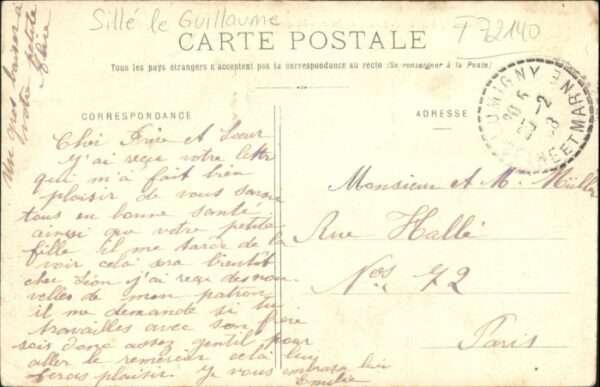 Sillé le Guillaume
F 72140
CARTE POSTALE
Tous les pays étrangers n'acceptent pas la correspondance au recto (Se renseigner à la Poste)
CORRESPONDANCE
ADRESSE
LUMIGNY
SEINE ET MARNE
Un gros baiser à
votre petite
Cher Frère et Sœur
J'ai reçu votre lettre
qui m'a fait bien
plaisir de vous savoir
tous en bonne santé
ainsi que votre petite
fille il me tarde de la
voir cela sera bientôt
cher Léon j'ai reçu des nou
velles de mon patron
il me demande si tu
travailles avec son
sois donc assez gentil pour
aller le remercier cela lui
feras plaisir. Je vous embrasse
Emilie
Monsieur et M. Müller
Rue Hallé
Nos 42
Paris